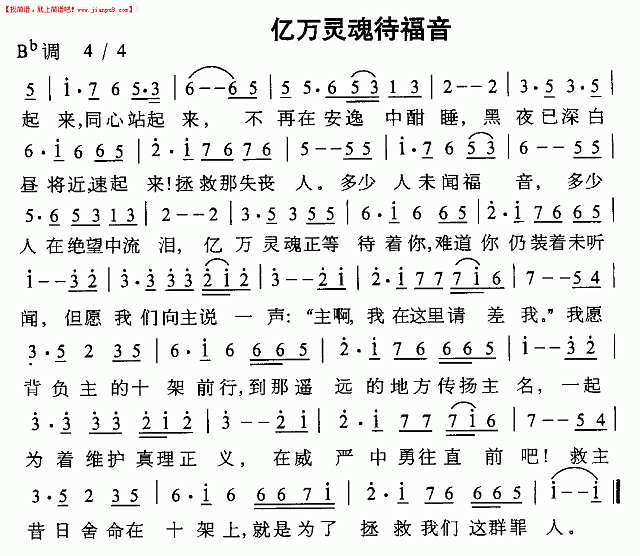 【找简谱,就上简谱吧!www.jianpu8.com】
亿万灵魂待福音
B♭调 4/4
5 | i·7 65·3 | 6--65 | 5·6 5 5313 | 2--2 | 3·5 3·5 |
起来,同心站起来, 不再在安逸中酣睡,黑夜已深白
6·i 665 | 2·i 7676 | 5--55 | i·7 653 | 5--55 |
昼将近,速起来!拯救那失丧人。多少人未闻福音,多少
5·6 5313 | 2--2 | 3·5 355 | 6·i 665 | 2·i 7665 |
人在绝望中流泪,亿万灵魂正等待着你,难道你仍装着未听
i--32 | 3·3 332i2i | 3--32 | 2·i 777i6 | 7--54 |
闻,但愿我们向主说一声:“主啊,我在这里请差我。”我愿
3·5 2 35 | 6·5 i 665 | 2·i 7 6665 | i--32 |
背负主的十架前行,到那遥远的地方传扬主名,一起
3·3 332i2 | 3--2i | 2·i 777i6 | 7--54 |
为着维护真理正义,在威严中勇往直前吧!救主
3·5 235 | 6·5 6 667i | 2·i 6665 | i--i |
昔日舍命在十架上,就是为了拯救我们这群罪人。